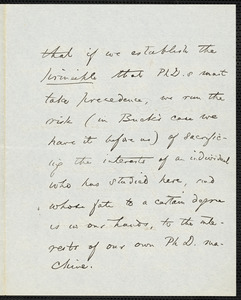 that if we establish the
principle that Ph.D.s must
take precedence, we run the
risk (in Buck's case we
have it before us) of sacrific-
ing the interests of an individual
who has studied here, and
whose fate to a certain degree
is in our hands, to the inte-
rests of our own Ph.D. ma-
chine.